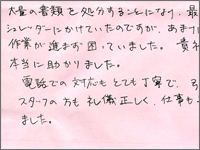 大量の書類を処分することになり、最
シュレッダーにかけていたのですが、あまり
作業が進まず困っていました。貴社
本当に助かりました。
電話での対応もとても丁寧で、引
スタッフの方も礼儀正しく、仕事も
ました。